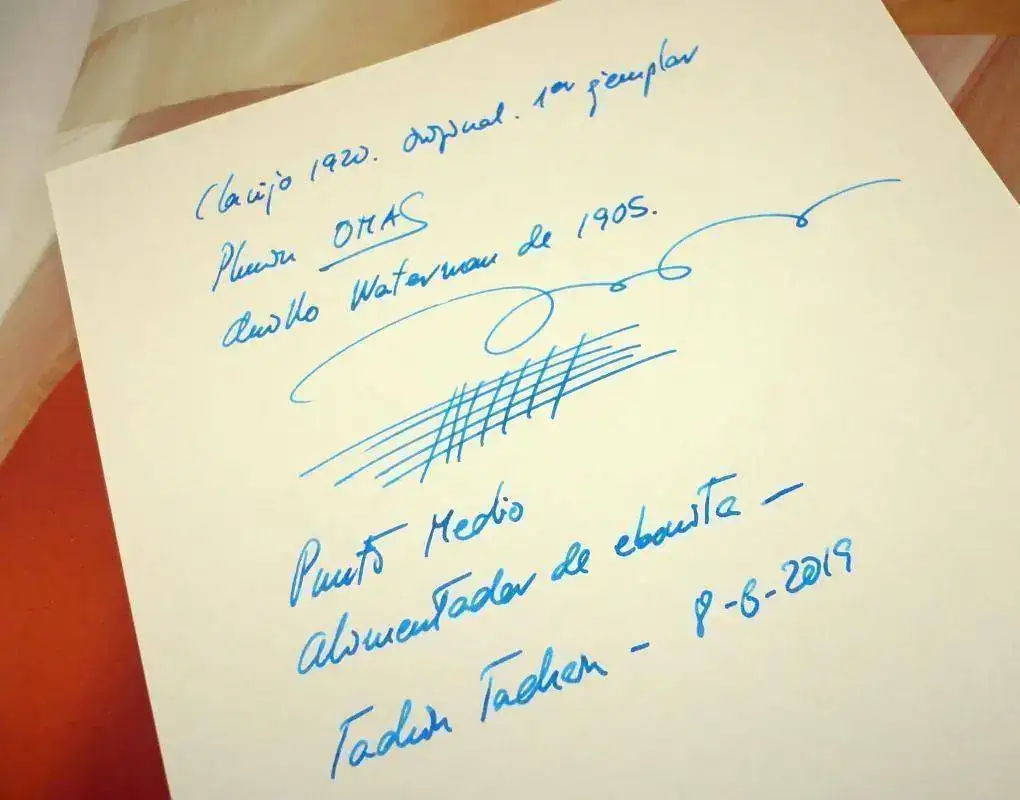 Clavijo 1920. original. 1er ejemplar
Plumín OMAS
Anillo Waterman de 1905.
Punto Medio
Alimentador de ebonita -
Tachín Tachán - 8-6-2019